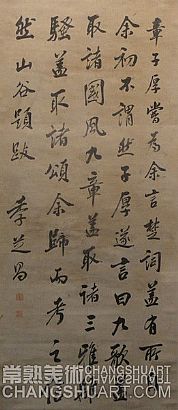 章子厚嘗為余言楚詞蓋有所
余初不謂然子厚遂言曰九歌蓋
取諸國風九章蓋取諸三雅離
騷蓋取諸頌余歸而考之信
然山谷題跋
季芝昌
常熟美術 CHANGSHUART
CHANGSHUART.COM